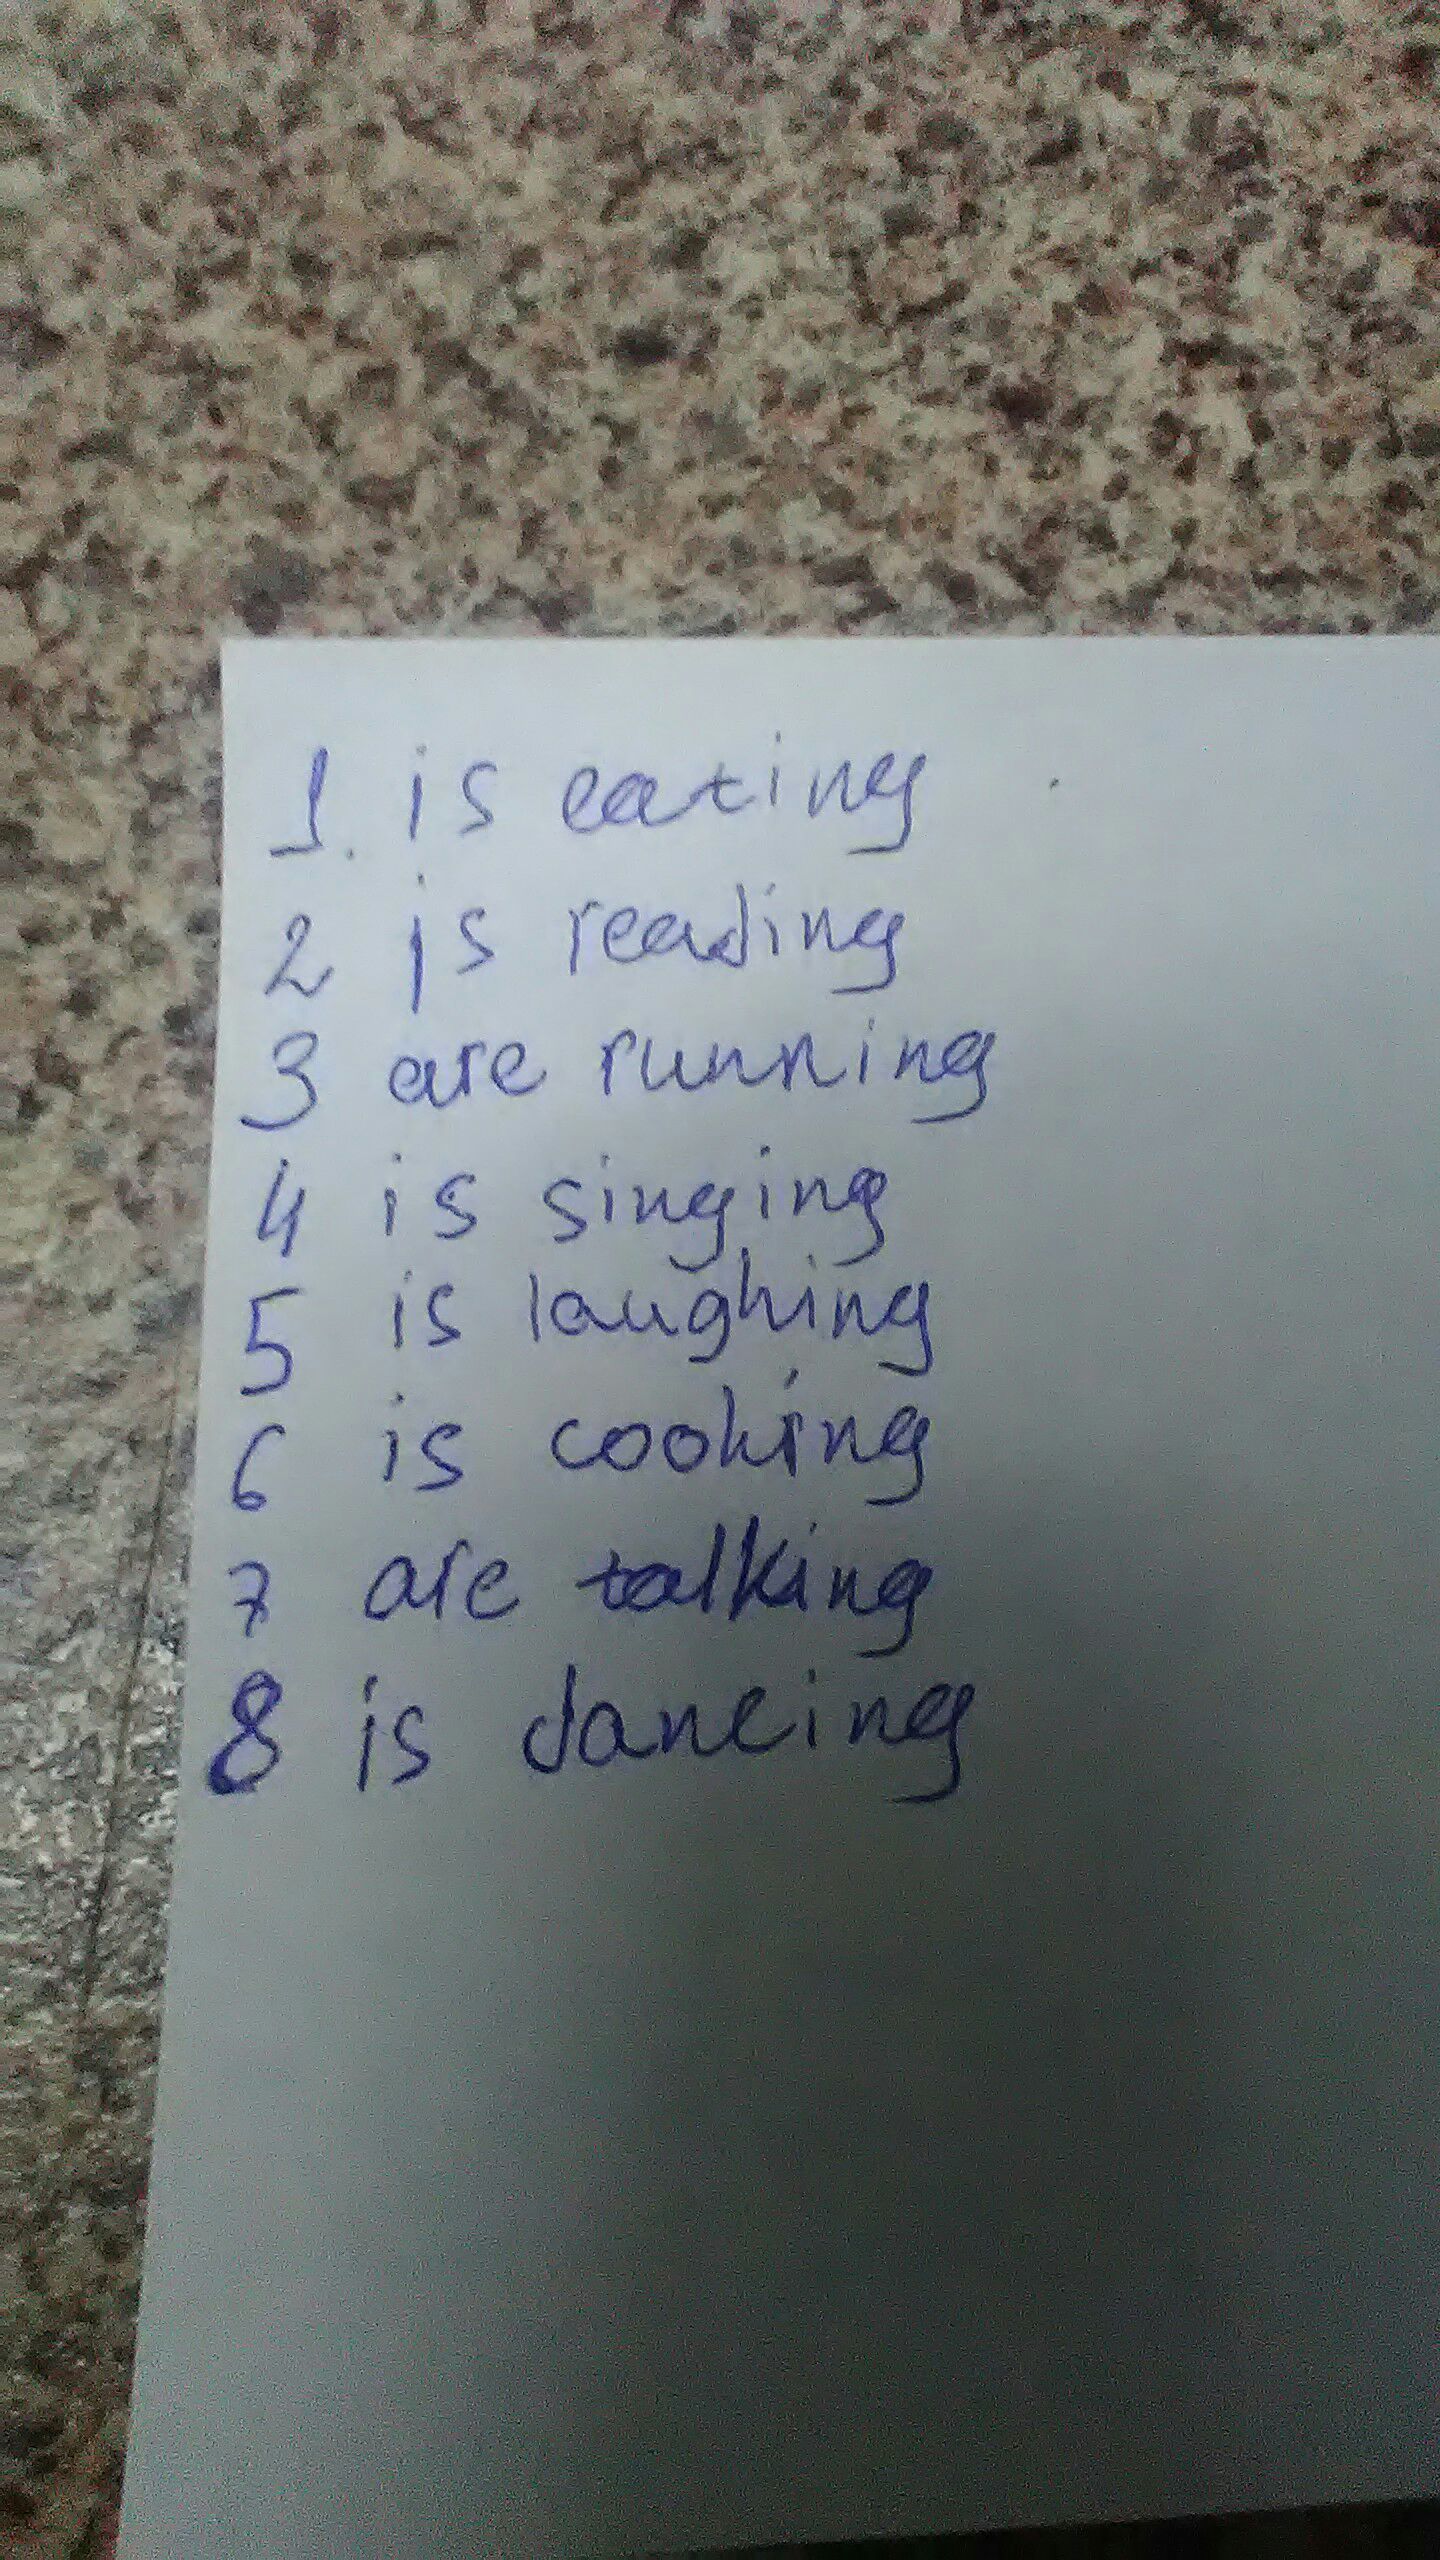 1. is eating
2 is reading
3 are running
4 is singing
5 is laughing
6 is cooking
7 are talking
8 is dancing